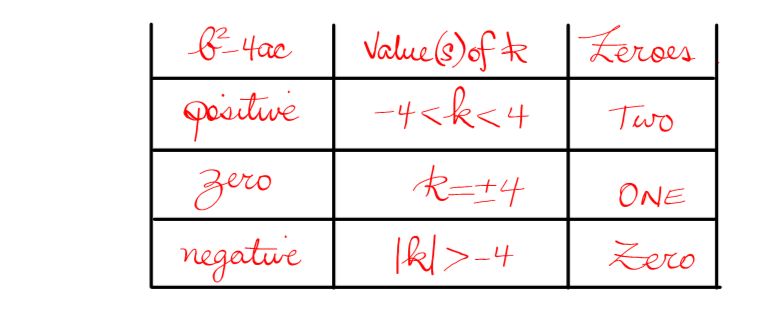 b²-4ac Value(s) of k Zeroes
positive -4<k<4 Two
zero k=±4 ONE
negative |k|>-4 Zero